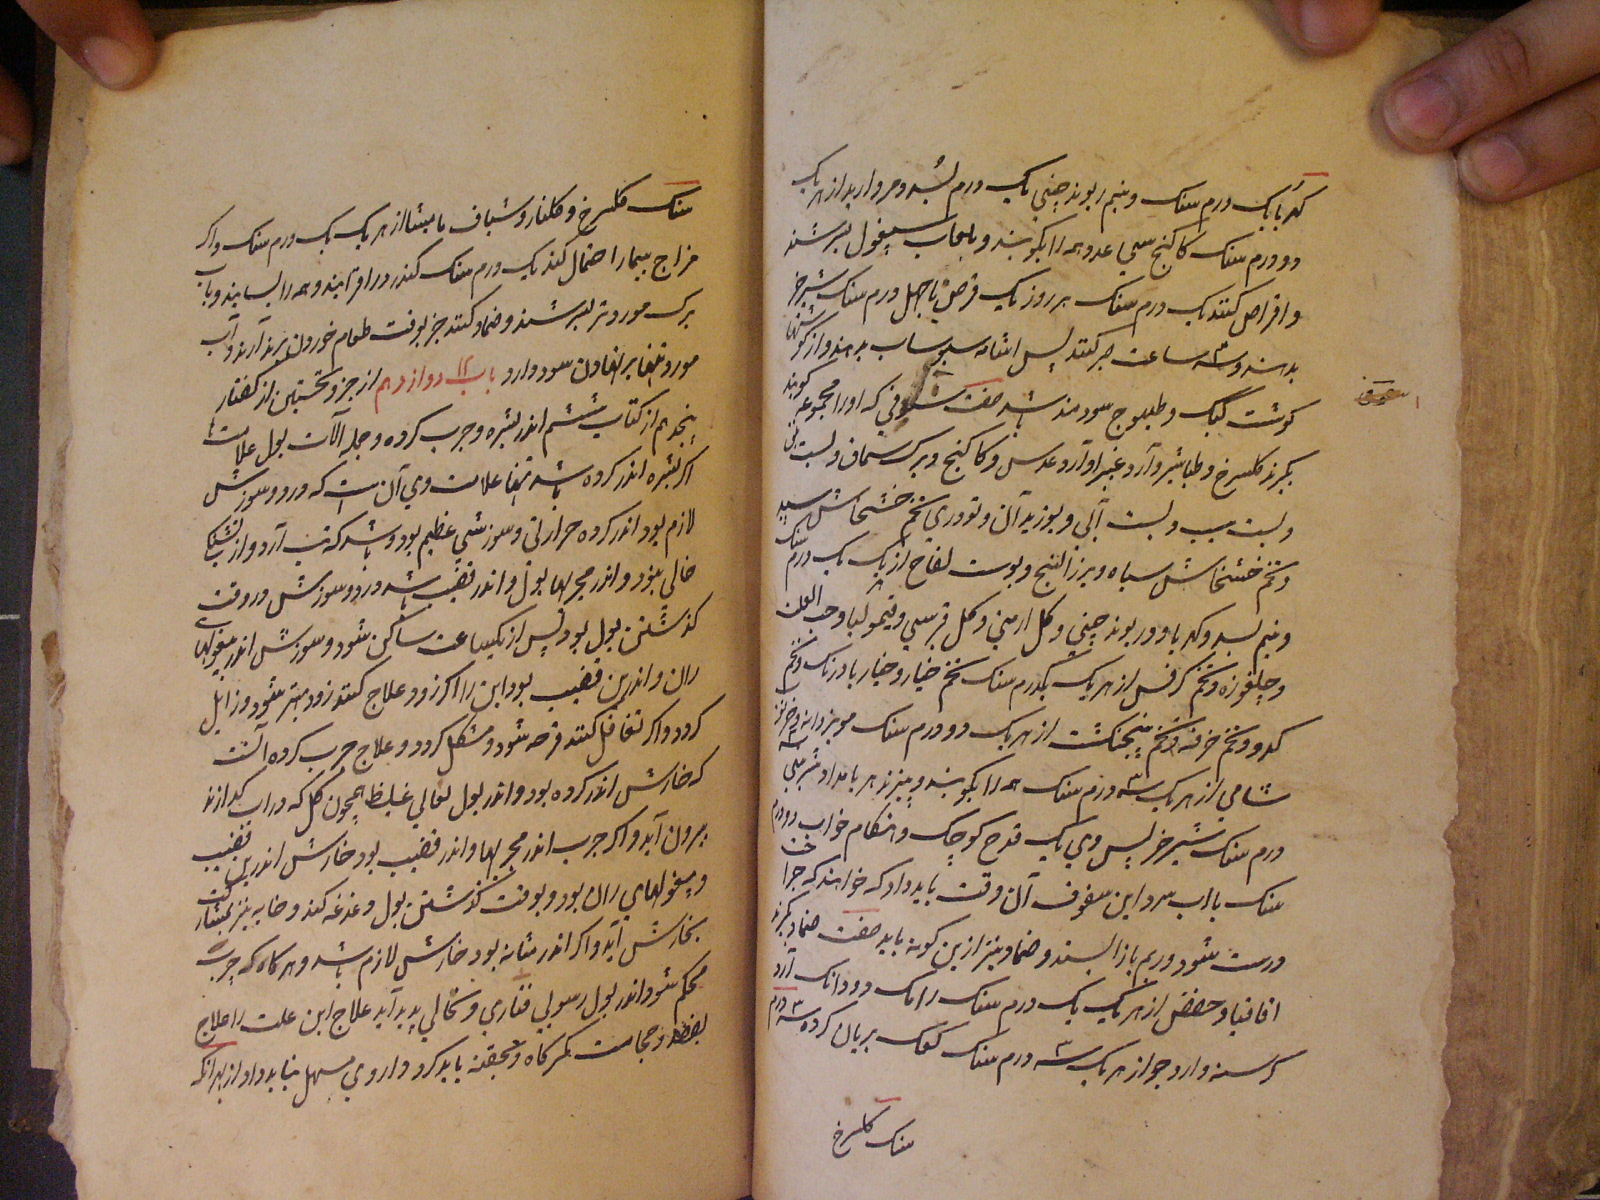 کهربا یک درم سنک و نیم ریوند چینی یک درم بسد و مروارید از هر یک
دو درم سنک کاکنج سی عدد همه را بکوبند و بلعاب اسپغول بسرشند
و اقراص کنند یک درم سنک هر روز یک قرص با چهل درم سنک شیر خر
بدهند و سه ساعت صبر کنند پس
کوشت کبک و طیهوج سودمند باشد صفت سفوفی که او را مجموعه کویند
بکیرند کلسرخ و طباشیر و آرد غبیرا و آرد عدس و کاکنج و برک سماق و پست
و پست سیب و پست آبی و تودری و تخم خشخاش سپید
و تخم خشخاش سیاه و بزر البنج و پوست لفاح از هر یک یک درم سنک
و نیم بسد و کهربا و ریوند چینی و کل ارمنی و کل قبرسی و قیمولیا و حب
و چلغوزه و تخم کرفس از هر یک یکدرم سنک تخم خیار و خیار بادرنک و تخم
کدو و تخم خرفه و تخم پنجنکشت از هر یک دو درم سنک مویز دانه
شامی از هر یک سه درم سنک همه را بکوبند و بپزند هر بامداد
درم سنک شیر خر پس وی یک قدح کوچک و هنکام خواب دو درم
سنک با آب سرد این سفوف آن وقت باید داد که خواهند که جراحت
درست شود و ریم باز ایستد و ضماد نیز ازین کونه باید صفت ضماد بکیرند
اقاقیا و حضض از هر یک یک درم سنک رامک دو دانک آرد
کرسنه و آرد جو از هر یک سه درم سنک کعک بریان کرده سه درم
سنک کلسرخ
سنک کلسرخ و کلنار و شیاف مامیثا از هر یک یک درم سنک و اکر
مزاج بیمار احتمال کند یک درم سنک کندر در افزایند و همه را بسایند و بآب
برک مورد تر بسرشند و ضماد کنند جز بوقت طعام خوردن برندارند و آب
مورد بر نهادن سود دارد باب ۱۲ دوازدهم از جزو نخستین از کفتار
پنجدهم از کتاب ششم اندر بثره و جرب کرده و جمله آلات بول علامت
اکر بثره اندر کرده باشد علامت وی آن است که درد و سوزش
لازم بود اندر کرده حرارتی و سوزشی عظیم بود و باشد که تب آرد و از
خالی نبود و اندر مجریهای بول و اندر قضیب باشد درد و سوزش در وقت
کذشتن بول بود پس از یکساعت ساکن شود و سوزش اندر بیغولهای
ران و اندر بن قضیب بود این را اکر زود علاج کنند زود بهتر شود و زایل
کردد و اکر تغافل کنند قرحه شود و مشکل کردد و علاج جرب کرده آنست
که خارش اندر کرده بود و اندر بول ثفالی غلیظ همچون کل که در آب کدازند
بیرون آید و اکر جرب اندر مجریها و اندر قضیب بود خارش اندر بن قضیب
و بیغولهای ران بود و بوقت کذشتن بول دغدغه کند و خایه نیز
بخارش آید و اکر اندر مثانه بود خارش لازم باشد و هر کاه که جرب
محکم شود اندر بول رسوبی و نخالی پدید آید علاج این علت را علاج
بفصد و حجامت کمرکاه و بحقنه باید کرد و داروی مسهل نباید داد از بهر آنکه